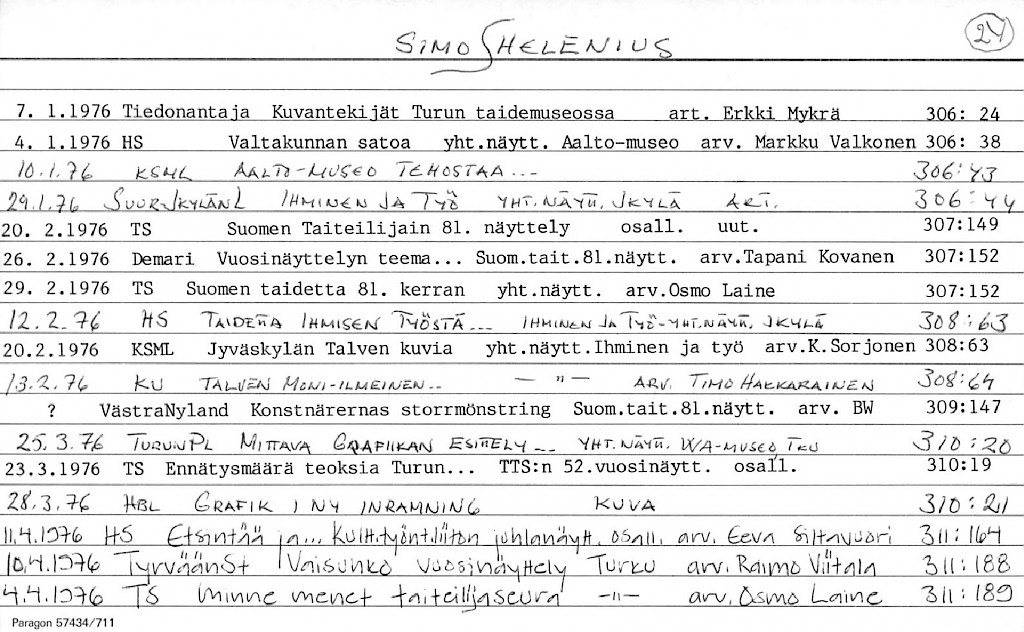 SIMO HELENIUS 24
7. 1.1976 Tiedonantaja Kuvantekijät Turun taidemuseossa art. Erkki Mykrä 306: 24
4. 1.1976 HS Valtakunnan satoa yht.näytt. Aalto-museo arv. Markku Valkonen 306: 38
10.1.76 KSML AALTO-MUSEO TEHOSTAA... 306:43
29.1.76 SUURJKYLÄNL IHMINEN JA TYÖ YHT.NÄYTT. JKYLÄ ART. 306:44
20. 2.1976 TS Suomen Taiteilijain 81. näyttely osall. uut. 307:149
26. 2.1976 Demari Vuosinäyttelyn teema... Suom.tait.81.näytt. arv.Tapani Kovanen 307:152
29. 2.1976 TS Suomen taidetta 81. kerran yht.näytt. arv.Osmo Laine 307:152
12.2.76 HS TAIDETTA IHMISEN TYÖSTÄ... IHMINEN JA TYÖ-YHT.NÄYTT. JKYLÄ 308:63
20.2.1976 KSML Jyväskylän Talven kuvia yht.näytt.Ihminen ja työ arv.K.Sorjonen 308:63
13.2.76 KU TALVEN MONI-ILMEINEN.. — " — ARV. TIMO HAKKARAINEN 308:64
? VästraNyland Konstnärernas storrmönstring Suom.tait.81.näytt. arv. BW 309:147
25.3.76 TURUNPL MITTAVA GRAFIIKAN ESITTELY... YHT.NÄYTT. WA-MUSEO, TKU 310:20
23.3.1976 TS Ennätysmäärä teoksia Turun... TTS:n 52.vuosinäytt. osall. 310:19
28.3.76 HBL GRAFIK I NY INRAMNING KUVA 310:21
11.4.1976 HS Etsintää ja... Kultt.työnt.liiton juhlanäytt. osall. arv. Eeva Siltavuori 311:164
10.4.1976 TyrväänSt Vaisunko vuosinäyttely Turku arv. Raimo Viitala 311:188
4.4.1976 TS Minne menet taiteilijaseura —"— arv. Osmo Laine 311:189
Paragon 57434/711